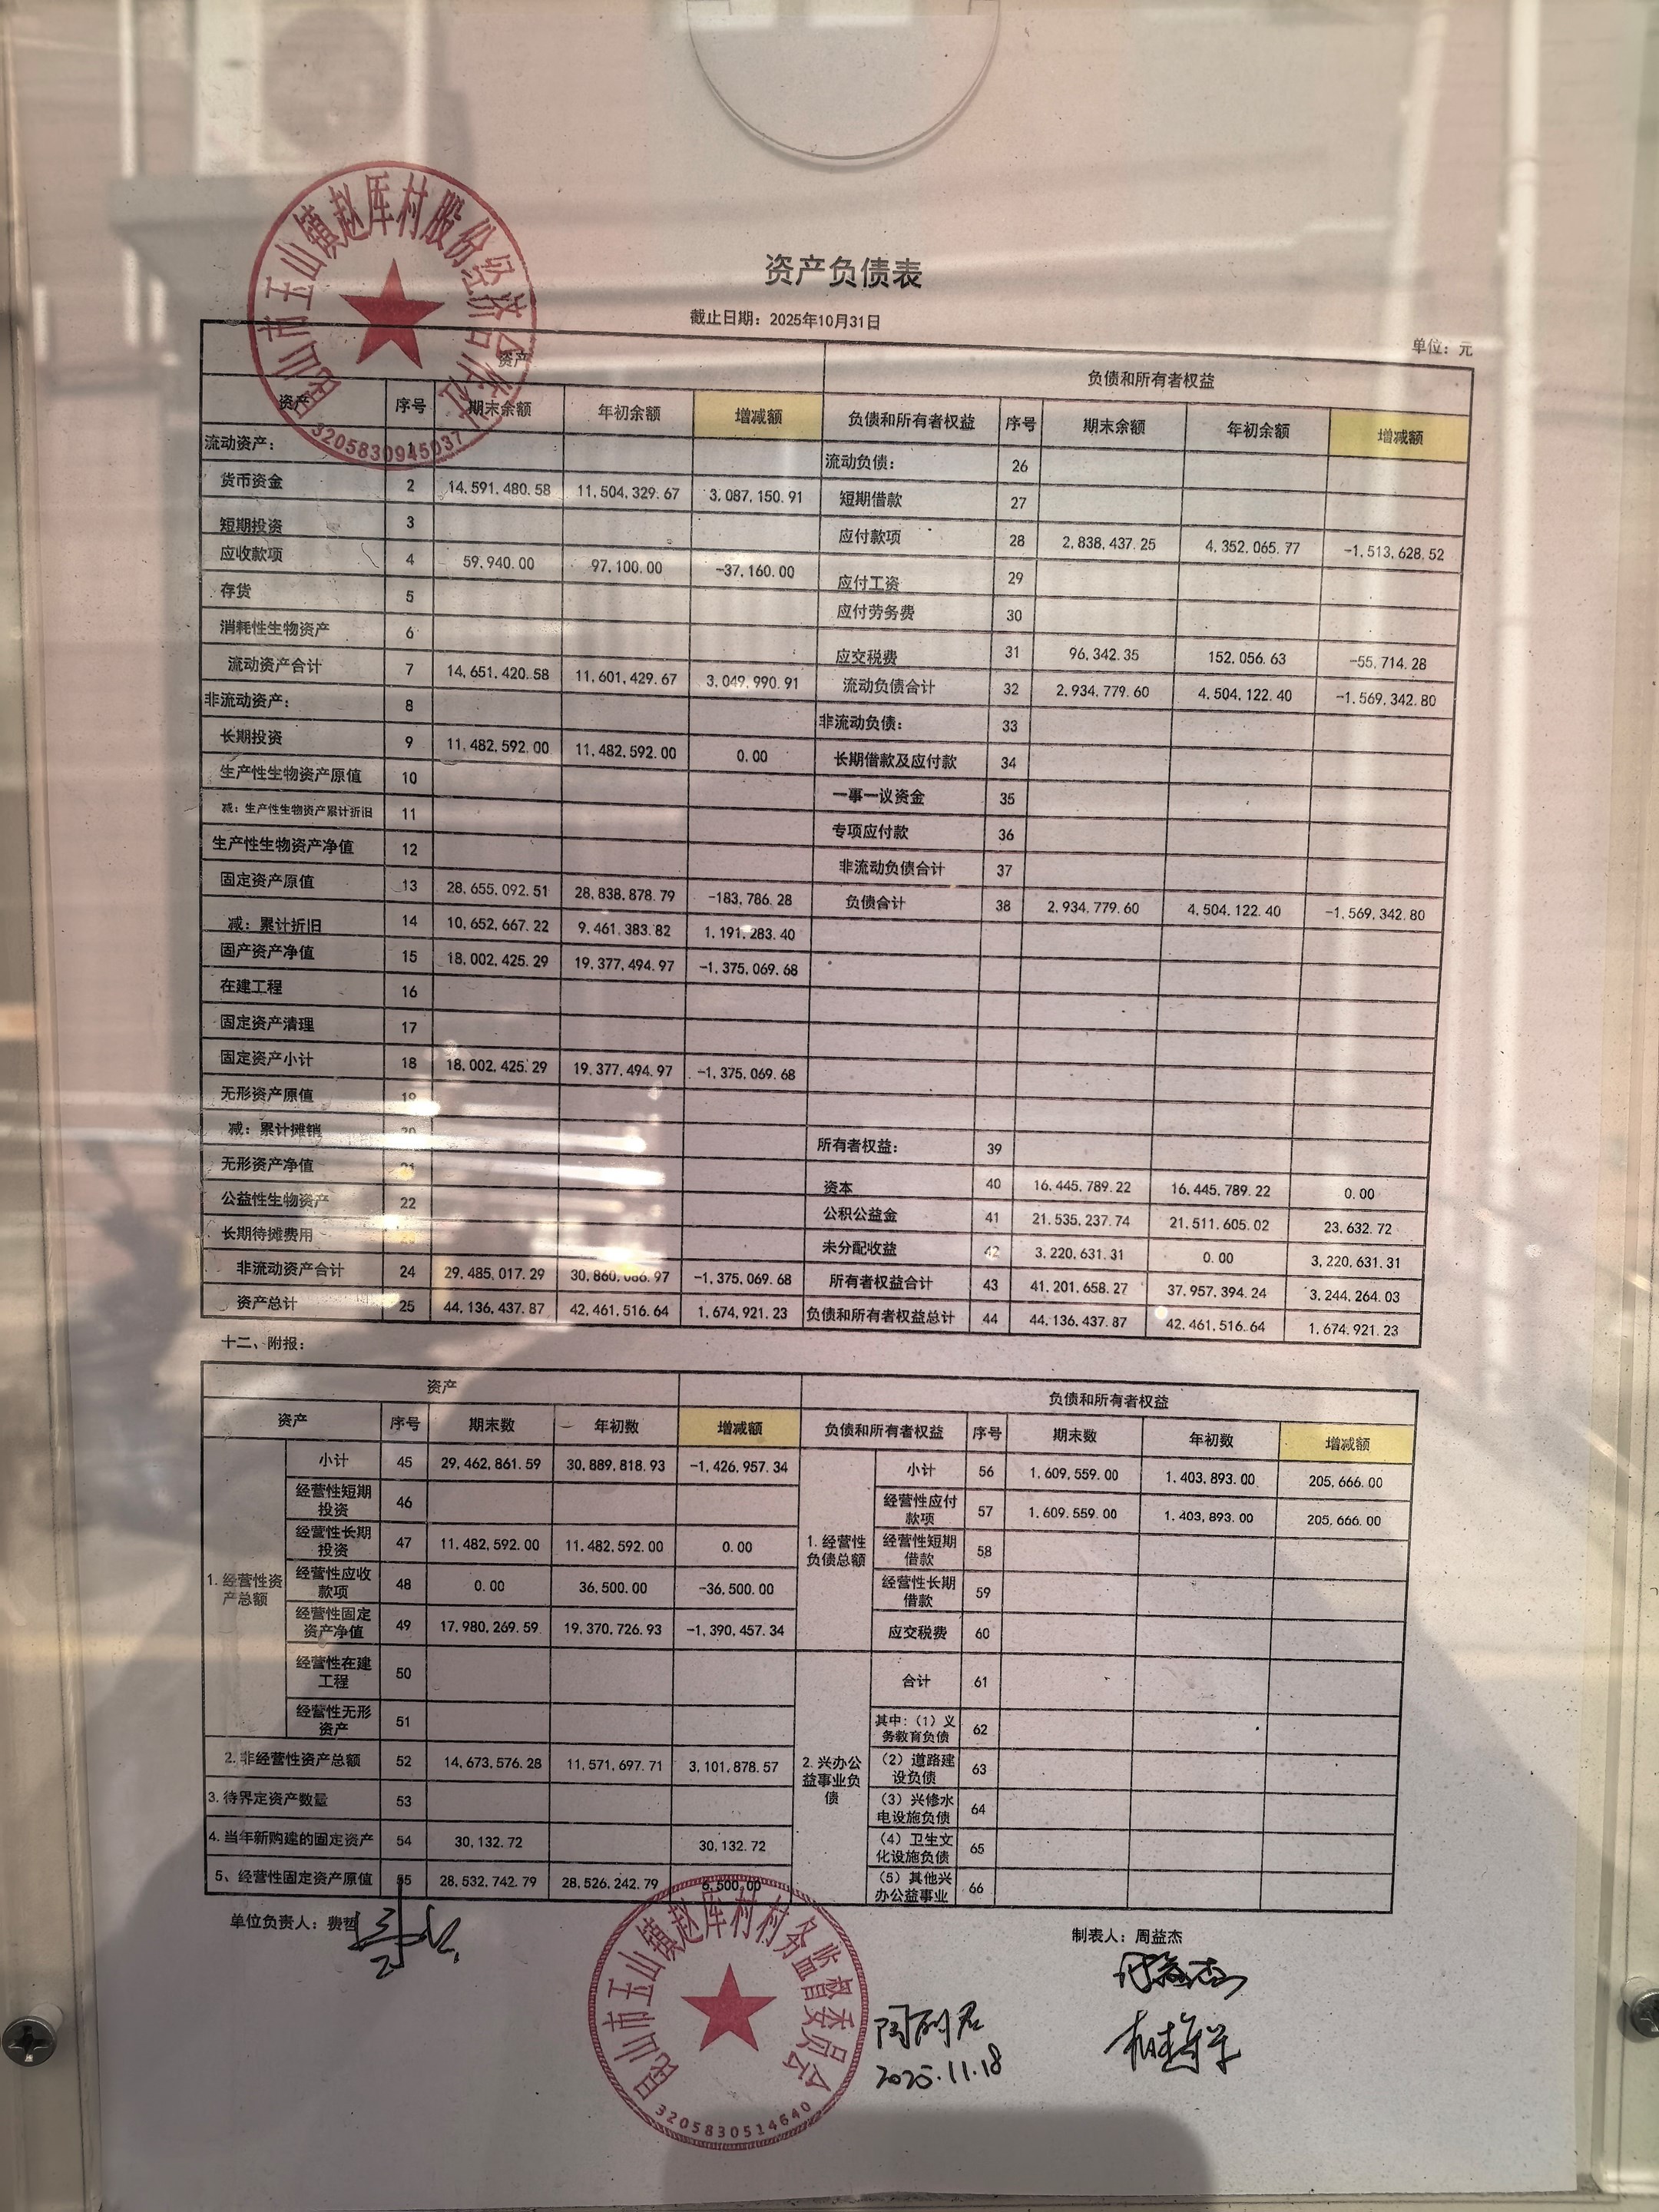 昆山市玉山镇赵厍村股份经济合作社
3205830945037
资产负债表
截止日期：2025年10月31日
单位：元
资产 负债和所有者权益
资产 序号 期末余额 年初余额 增减额 负债和所有者权益 序号 期末余额 年初余额 增减额
流动资产： 1 流动负债： 26
货币资金 2 14,591,480.58 11,504,329.67 3,087,150.91 短期借款 27
短期投资 3 应付款项 28 2,838,437.25 4,352,065.77 -1,513,628.52
应收款项 4 59,940.00 97,100.00 -37,160.00 应付工资 29
存货 5 应付劳务费 30
消耗性生物资产 6 应交税费 31 96,342.35 152,056.63 -55,714.28
流动资产合计 7 14,651,420.58 11,601,429.67 3,049,990.91 流动负债合计 32 2,934,779.60 4,504,122.40 -1,569,342.80
非流动资产： 8 非流动负债： 33
长期投资 9 11,482,592.00 11,482,592.00 0.00 长期借款及应付款 34
生产性生物资产原值 10 一事一议资金 35
减：生产性生物资产累计折旧 11 专项应付款 36
生产性生物资产净值 12 非流动负债合计 37
固定资产原值 13 28,655,092.51 28,838,878.79 -183,786.28 负债合计 38 2,934,779.60 4,504,122.40 -1,569,342.80
减：累计折旧 14 10,652,667.22 9,461,383.82 1,191,283.40
固产资产净值 15 18,002,425.29 19,377,494.97 -1,375,069.68
在建工程 16
固定资产清理 17
固定资产小计 18 18,002,425.29 19,377,494.97 -1,375,069.68
无形资产原值 19
减：累计摊销 20 所有者权益： 39
无形资产净值 21 资本 40 16,445,789.22 16,445,789.22 0.00
公益性生物资产 22 公积公益金 41 21,535,237.74 21,511,605.02 23,632.72
长期待摊费用 未分配收益 42 3,220,631.31 0.00 3,220,631.31
非流动资产合计 24 29,485,017.29 30,860,086.97 -1,375,069.68 所有者权益合计 43 41,201,658.27 37,957,394.24 3,244,264.03
资产总计 25 44,136,437.87 42,461,516.64 1,674,921.23 负债和所有者权益总计 44 44,136,437.87 42,461,516.64 1,674,921.23
十二、附报：
资产 负债和所有者权益
资产 序号 期末数 年初数 增减额 负债和所有者权益 序号 期末数 年初数 增减额
1.经营性资产总额 小计 45 29,462,861.59 30,889,818.93 -1,426,957.34 1.经营性负债总额 小计 56 1,609,559.00 1,403,893.00 205,666.00
经营性短期投资 46 经营性应付款项 57 1,609,559.00 1,403,893.00 205,666.00
经营性长期投资 47 11,482,592.00 11,482,592.00 0.00 经营性短期借款 58
经营性应收款项 48 0.00 36,500.00 -36,500.00 经营性长期借款 59
经营性固定资产净值 49 17,980,269.59 19,370,726.93 -1,390,457.34 应交税费 60
经营性在建工程 50 2.兴办公益事业负债 合计 61
经营性无形资产 51 其中：（1）义务教育负债 62
2.非经营性资产总额 52 14,673,576.28 11,571,697.71 3,101,878.57 （2）道路建设负债 63
3.待界定资产数量 53 （3）兴修水电设施负债 64
4.当年新购建的固定资产 54 30,132.72 30,132.72 （4）卫生文化设施负债 65
5、经营性固定资产原值 55 28,532,742.79 28,526,242.79 6,500.00 （5）其他兴办公益事业 66
单位负责人：费哲
制表人：周益杰
昆山市玉山镇赵厍村村务监督委员会
3205830514640
周益杰
2025.11.18